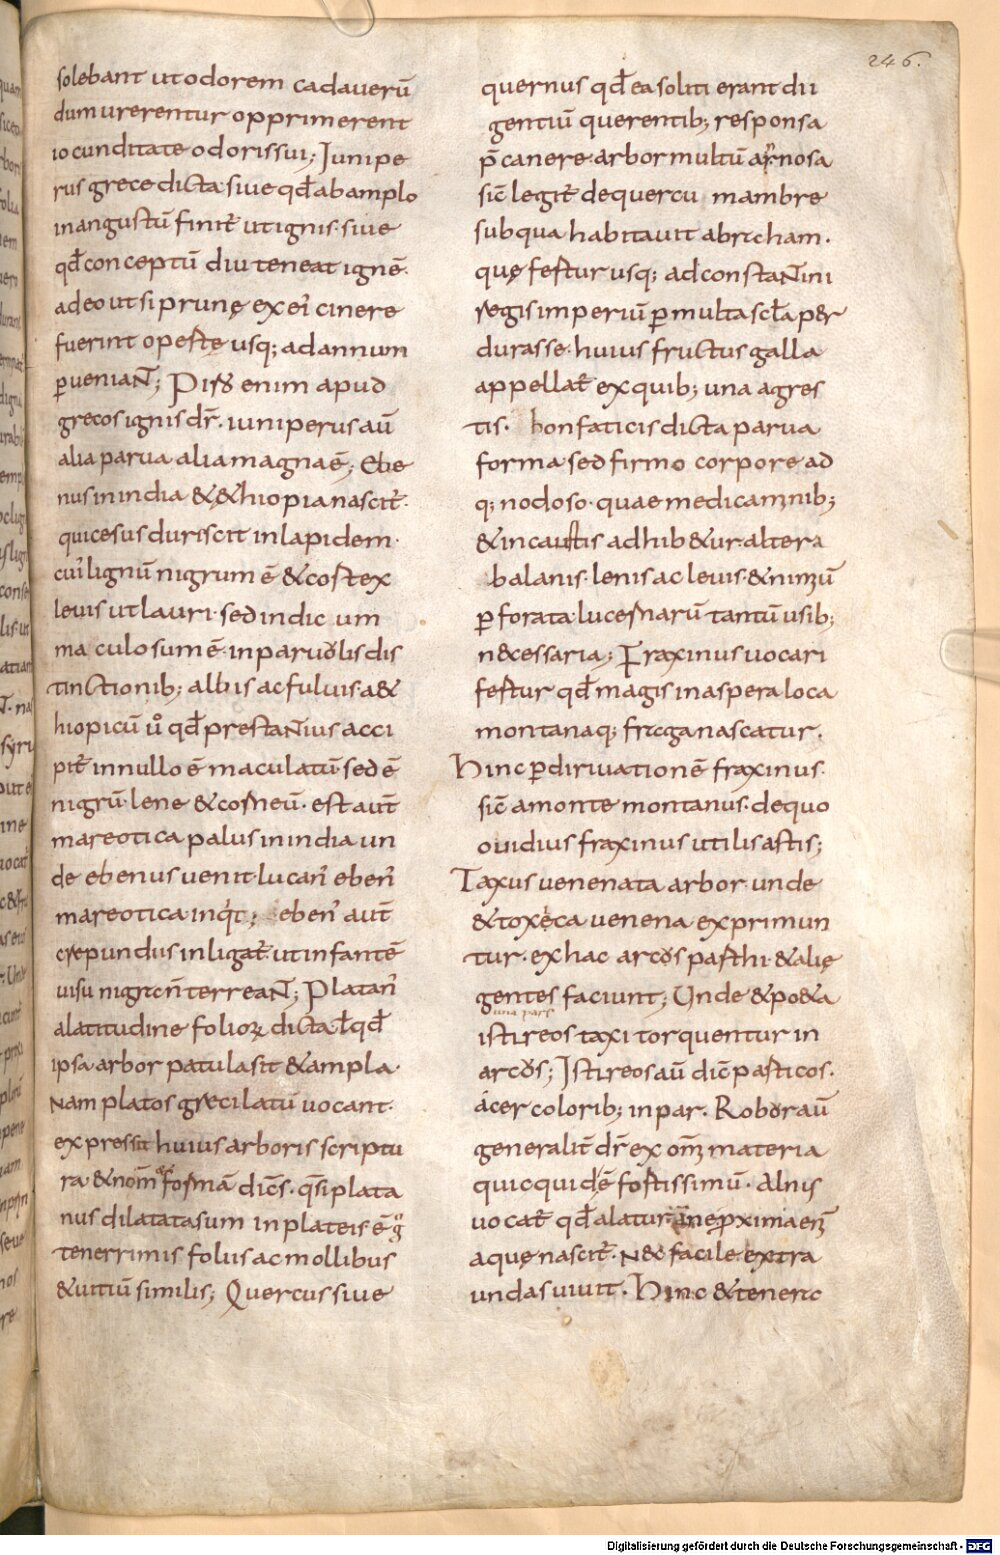 246.
solebant ut odorem cadauerū
dum urerentur opprimerent
iocunditate odoris sui; Junipe
rus grece dicta siue qđ ab amplo
in angustū finit̄ ut ignis. siue
qđ conceptū diu teneat ignē.
adeo ut si prunę ex ei' cinere
fuerint opertę usq; ad annum
ꝑueniaNT; Pir enim apud
grecos ignis dr̄. iuniperus aū
alia parua alia magna ē; Ebe
nus in india & ęthiopia nascit̄.
qui cesus durescit in lapidem.
cui' lignū nigrum ē & cortex
leuis ut lauri. sed indic um
ma culosum ē in paruolis dis
tinctionib; albis ac fuluis. a&
hiopicū ů qđ prestaNTius acci
pit̄ in nullo ē maculatū sed ē
nigrū lene & corneū. est aut̄
mareotica palus in india un
de ebenus uenit. lucan' eben'
mareotica inq̇t; eben' aut̄
crepundus inligat̄. ut infantē
uisu nigrten̄ terreaNT; Platan'
a latitudine folioꝝ dicta ł qđ
ipsa arbor patula sit & ampla.
Nam platos greci latū uocant.
expressit huius arboris scriptu
ra & nom̄ & formā dic̄s. q̄si plata
nus dilatata sum in plateis ē g̊
tenerrimis foliis ac mollibus
& uitiū similis; Quercus siue
quernus qđ ea soliti erant dii
gentiū querentib; responsa
p̄canere. arbor multū annosa
sic̄ legit̄ de quercu mambre
sub qua habitauit abraham.
quę fertur usq; ad constaNTini
regis imperiū ꝑ multa scła per
durasse. huius fructus galla
appellat̄ ex quib; una agres
tis. honfaticis dicta parua
forma sed firmo corpore ad
q; nodoso. quae medicam̄nib;
& incaustis adhib&ur. altera
balanis. lenis ac leuis. & nimiū
ꝑforata lucernarū tantū usib;
n&cessaria; Fraxinus uocari
fertur qđ magis in aspera loca
montanaq; fraga nascatur.
Hinc ꝑ diriuationē fraxinus.
sic̄ a monte montanus. de quo
ouidius fraxinus utilis astis;
Taxus uenenata arbor. unde
& toxęca uenena exprimun
tur. ex hac arcos parthi. & alię
gentes faciunt; Unde & po&a
una pars
istireos taxi torquentur in
arcos; Jstireos aū dic̄ particos.
acer colorib; inpar. Robora ū
generalit̄ dr̄ ex om̄i materia
quicquid ē fortissimū. Alnis
uocat̄ qđ alatur amne ꝓxima enī
aquę nascit̄. Nec facile extra
undas uiuit. Hinc & tenera
Digitalisierung gefördert durch die Deutsche Forschungsgemeinschaft - DFG